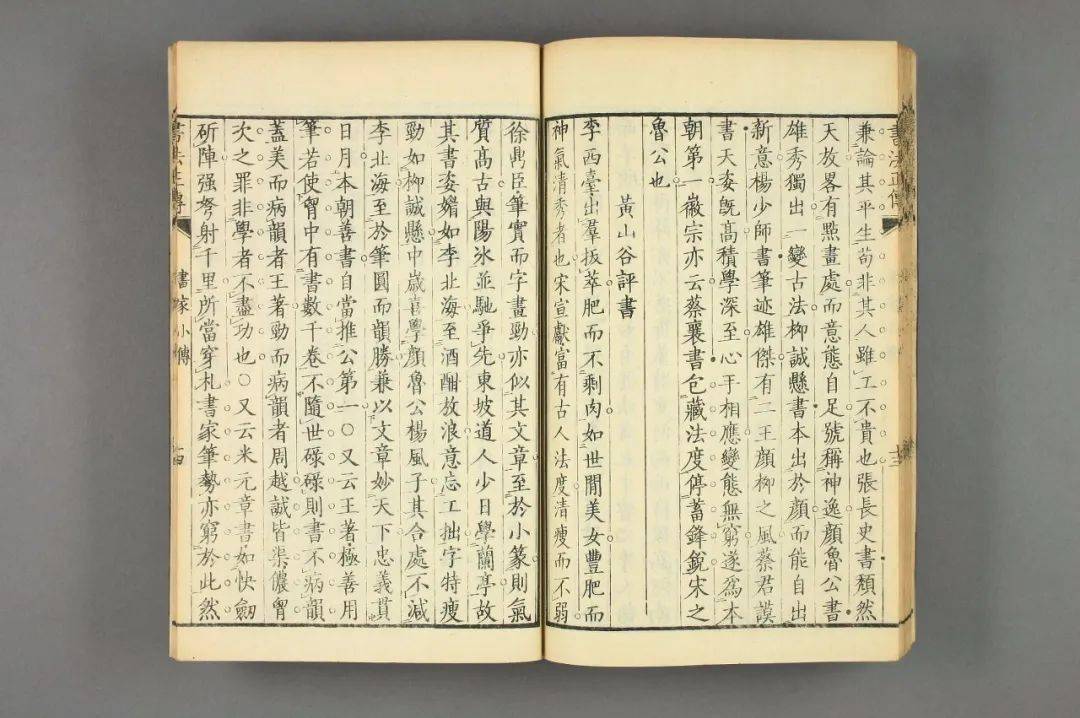 兼論其平生苟非其人雖工不貴也張長史書頹然
天放畧有點畫處而意態自足號稱神逸顏魯公書
雄秀獨出一變古法柳誠懸書本出於顏而能自出
新意楊少師書筆迹雄傑有二王顏柳之風蔡君謨
書天姿旣高積學深至心手相應變態無窮遂爲本
朝第一徽宗亦云蔡襄書包藏法度停蓄鋒銳宋之
魯公也
黃山谷評書
李西臺出羣拔萃肥而不剩肉如世閒美女豐肥而
神氣清秀者也宋宣獻富有古人法度清瘦而不弱
徐鼎臣筆實而字畫勁亦似其文章至於小篆則氣
質高古與陽氷並馳爭先東坡道人少日學蘭亭故
其書姿媚如李北海至酒酣放浪意忘工拙字特瘦
勁如柳誠懸中歲喜學顏魯公楊風子其合處不減
李北海至於筆圓而韻勝兼以文章妙天下忠義貫
日月本朝善書自當推公第一○又云王著極善用
筆若使胷中有書數千卷不隨世碌碌則書不病韻
蓋美而病韻者王著勁而病韻者周越誠皆渠儂胷
次之罪非學者不盡功也○又云米元章書如快劒
斫陣强弩射千里所當穿札書家筆勢亦窮於此然
書法正傳
書家小傳
十四